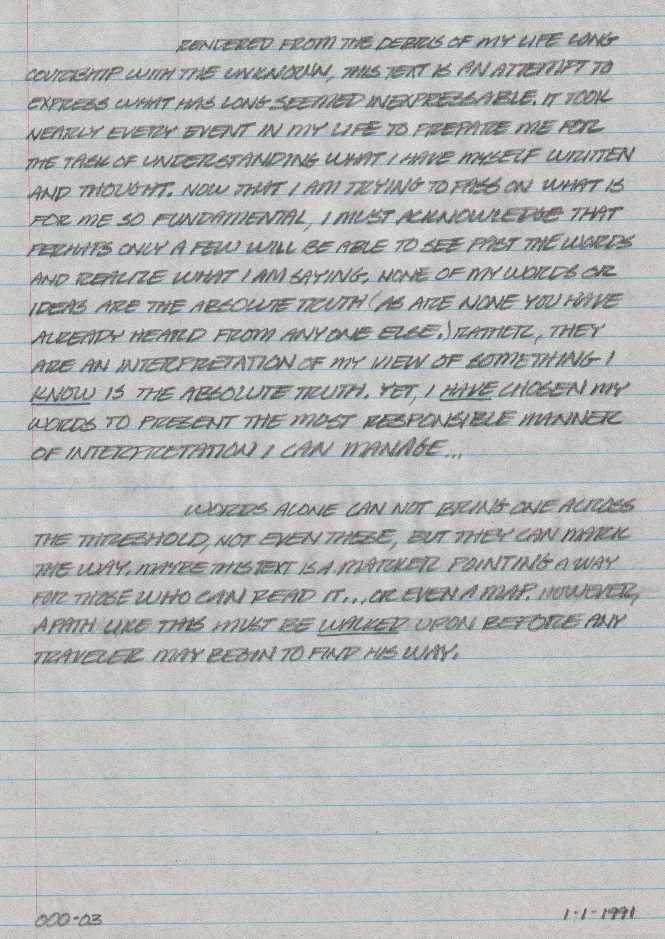 RENDERED FROM THE DEBRIS OF MY LIFE LONG
COURTSHIP WITH THE UNKNOWN, THIS TEXT IS AN ATTEMPT TO
EXPRESS WHAT HAS LONG SEEMED INEXPRESSABLE. IT TOOK
NEARLY EVERY EVENT IN MY LIFE TO PREPARE ME FOR
THE TASK OF UNDERSTANDING WHAT I HAVE MYSELF WRITTEN
AND THOUGHT. NOW THAT I AM TRYING TO PASS ON WHAT IS
FOR ME SO FUNDAMENTAL, I MUST ACKNOWLEDGE THAT
PERHAPS ONLY A FEW WILL BE ABLE TO SEE PAST THE WORDS
AND REALIZE WHAT I AM SAYING. NONE OF MY WORDS OR
IDEAS ARE THE ABSOLUTE TRUTH (AS ARE NONE YOU HAVE
ALREADY HEARD FROM ANYONE ELSE.) RATHER, THEY
ARE AN INTERPRETATION OF MY VIEW OF SOMETHING I
KNOW IS THE ABSOLUTE TRUTH. YET, I HAVE CHOSEN MY
WORDS TO PRESENT THE MOST RESPONSIBLE MANNER
OF INTERPRETATION I CAN MANAGE...
WORDS ALONE CAN NOT BRING ONE ACROSS
THE THRESHOLD, NOT EVEN THESE, BUT THEY CAN MARK
THE WAY. MAYBE THIS TEXT IS A MARKER POINTING A WAY
FOR THOSE WHO CAN READ IT... OR EVEN A MAP. HOWEVER,
A PATH LIKE THIS MUST BE WALKED UPON BEFORE ANY
TRAVELER MAY BEGIN TO FIND HIS WAY.
000-03
1-1-1991